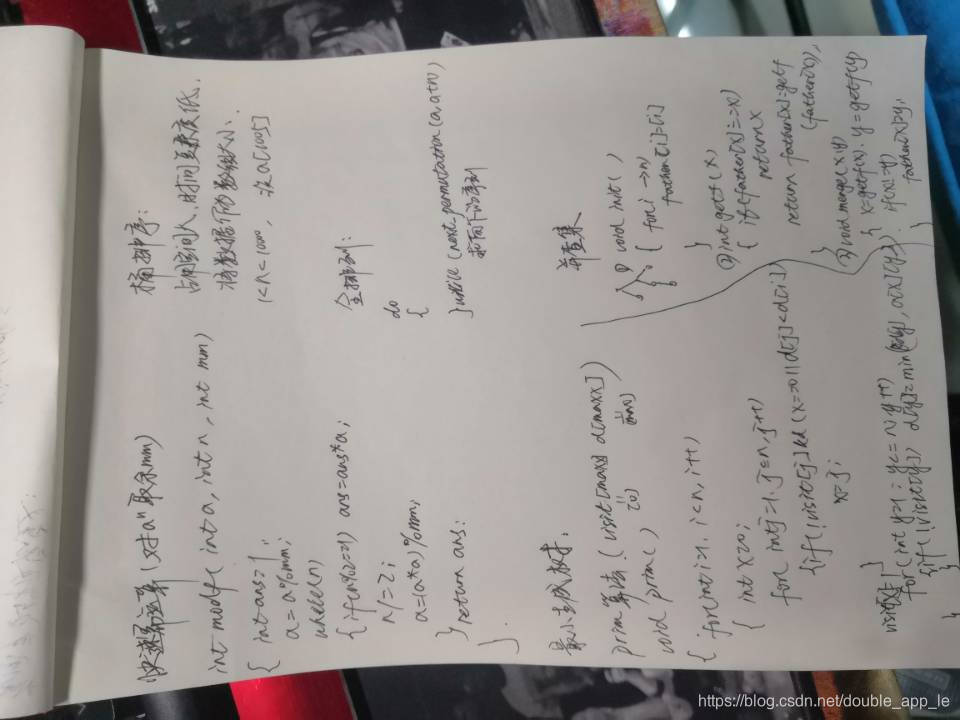 快速幂运算(对aⁿ取余mm)
int modf(int a, int n, int mm)
{ int ans=1;
a=a%mm;
while(n)
{ if(n%2==1) ans=ans*a;
n/=2;
a=(a*a)%mm;
}
return ans;
}
桶排序:
占用空间大,时间复杂度低.
1<n<1000, 设a[1005]
全排列:
do
{
}while(next_permutation(a,a+n)
最小生成树:
prim算法(visit[maxx] d[maxx])
void prim()
{ for(int i=1; i<n, i++)
{ int x=0;
for(int j=1; j<=n, j++)
{ if(!visit[j]&&(x==0||d[j]<d[x])
x=j;
visit[x]=1
for(int y=1; y<=n; y++)
{ if(!visit[y]) d[y]=min(d[y],a[x][y]).
}
}
并查集
① void init()
{ for i→n
father[i]=i
}
② int getf(x)
{ if(father[x]==x)
return x
return father[x]=getf
(father[x]);
}
③ void merge(x,y)
{ x=getf(x). y=getf(y)
if(x!=y)
father[x]=y,
}
https://blog.csdn.net/double_app_le